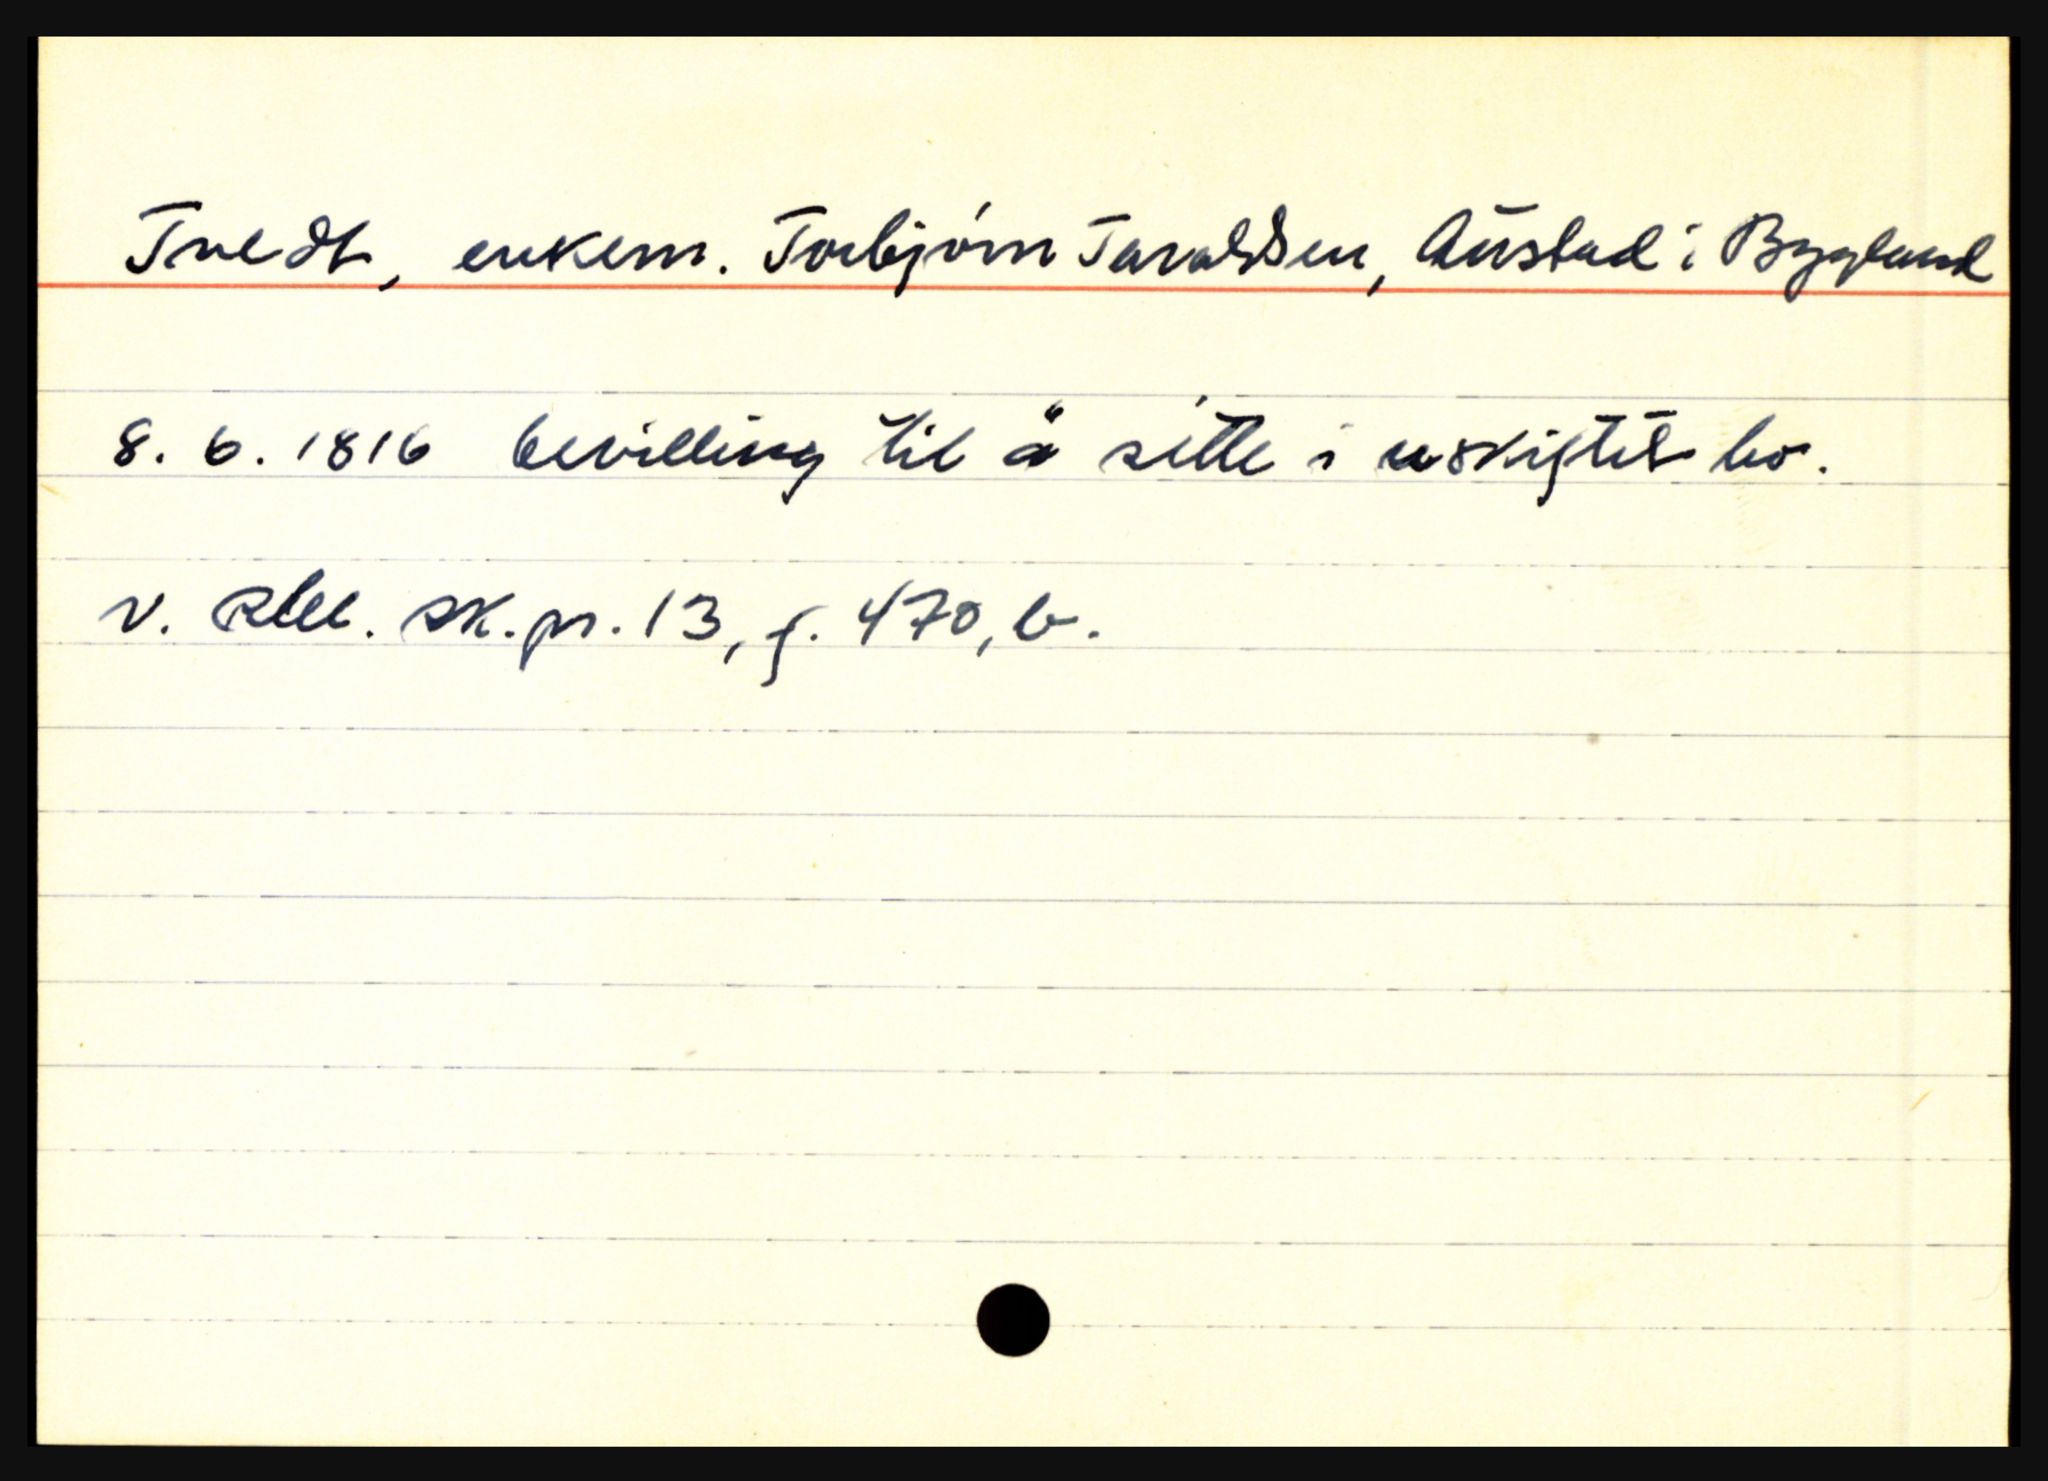 Tvedt, enkem. Torbjørn Taraldsen, Austad i Bygland
8. 6. 1816 bevilling til å sitte i uskiftet bo.
v. Rbl. sk. pr. 13, f. 470, b.